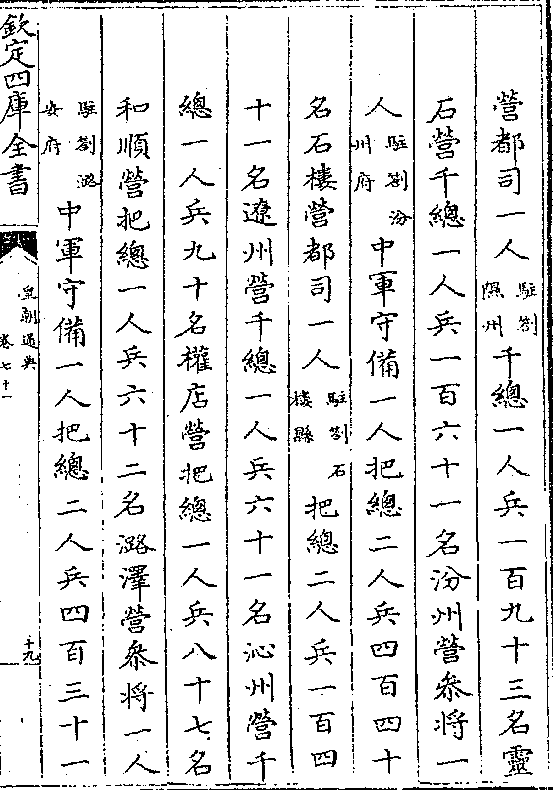 營都司一人駐劄隰州千總一人兵一百九十三名靈
石營千總一人兵一百六十一名汾州營叅將一
人駐劄汾州府中軍守備一人把總二人兵四百四十
名石樓營都司一人駐劄石樓縣把總二人兵一百四
十一名遼州營千總一人兵六十一名沁州營千
總一人兵九十名權店營把總一人兵八十七名
和順營把總一人兵六十二名潞澤營叅將一人
駐劄潞安府中軍守備一人把總二人兵四百三十一
欽定四庫全書
皇朝通典
卷七十一
十九